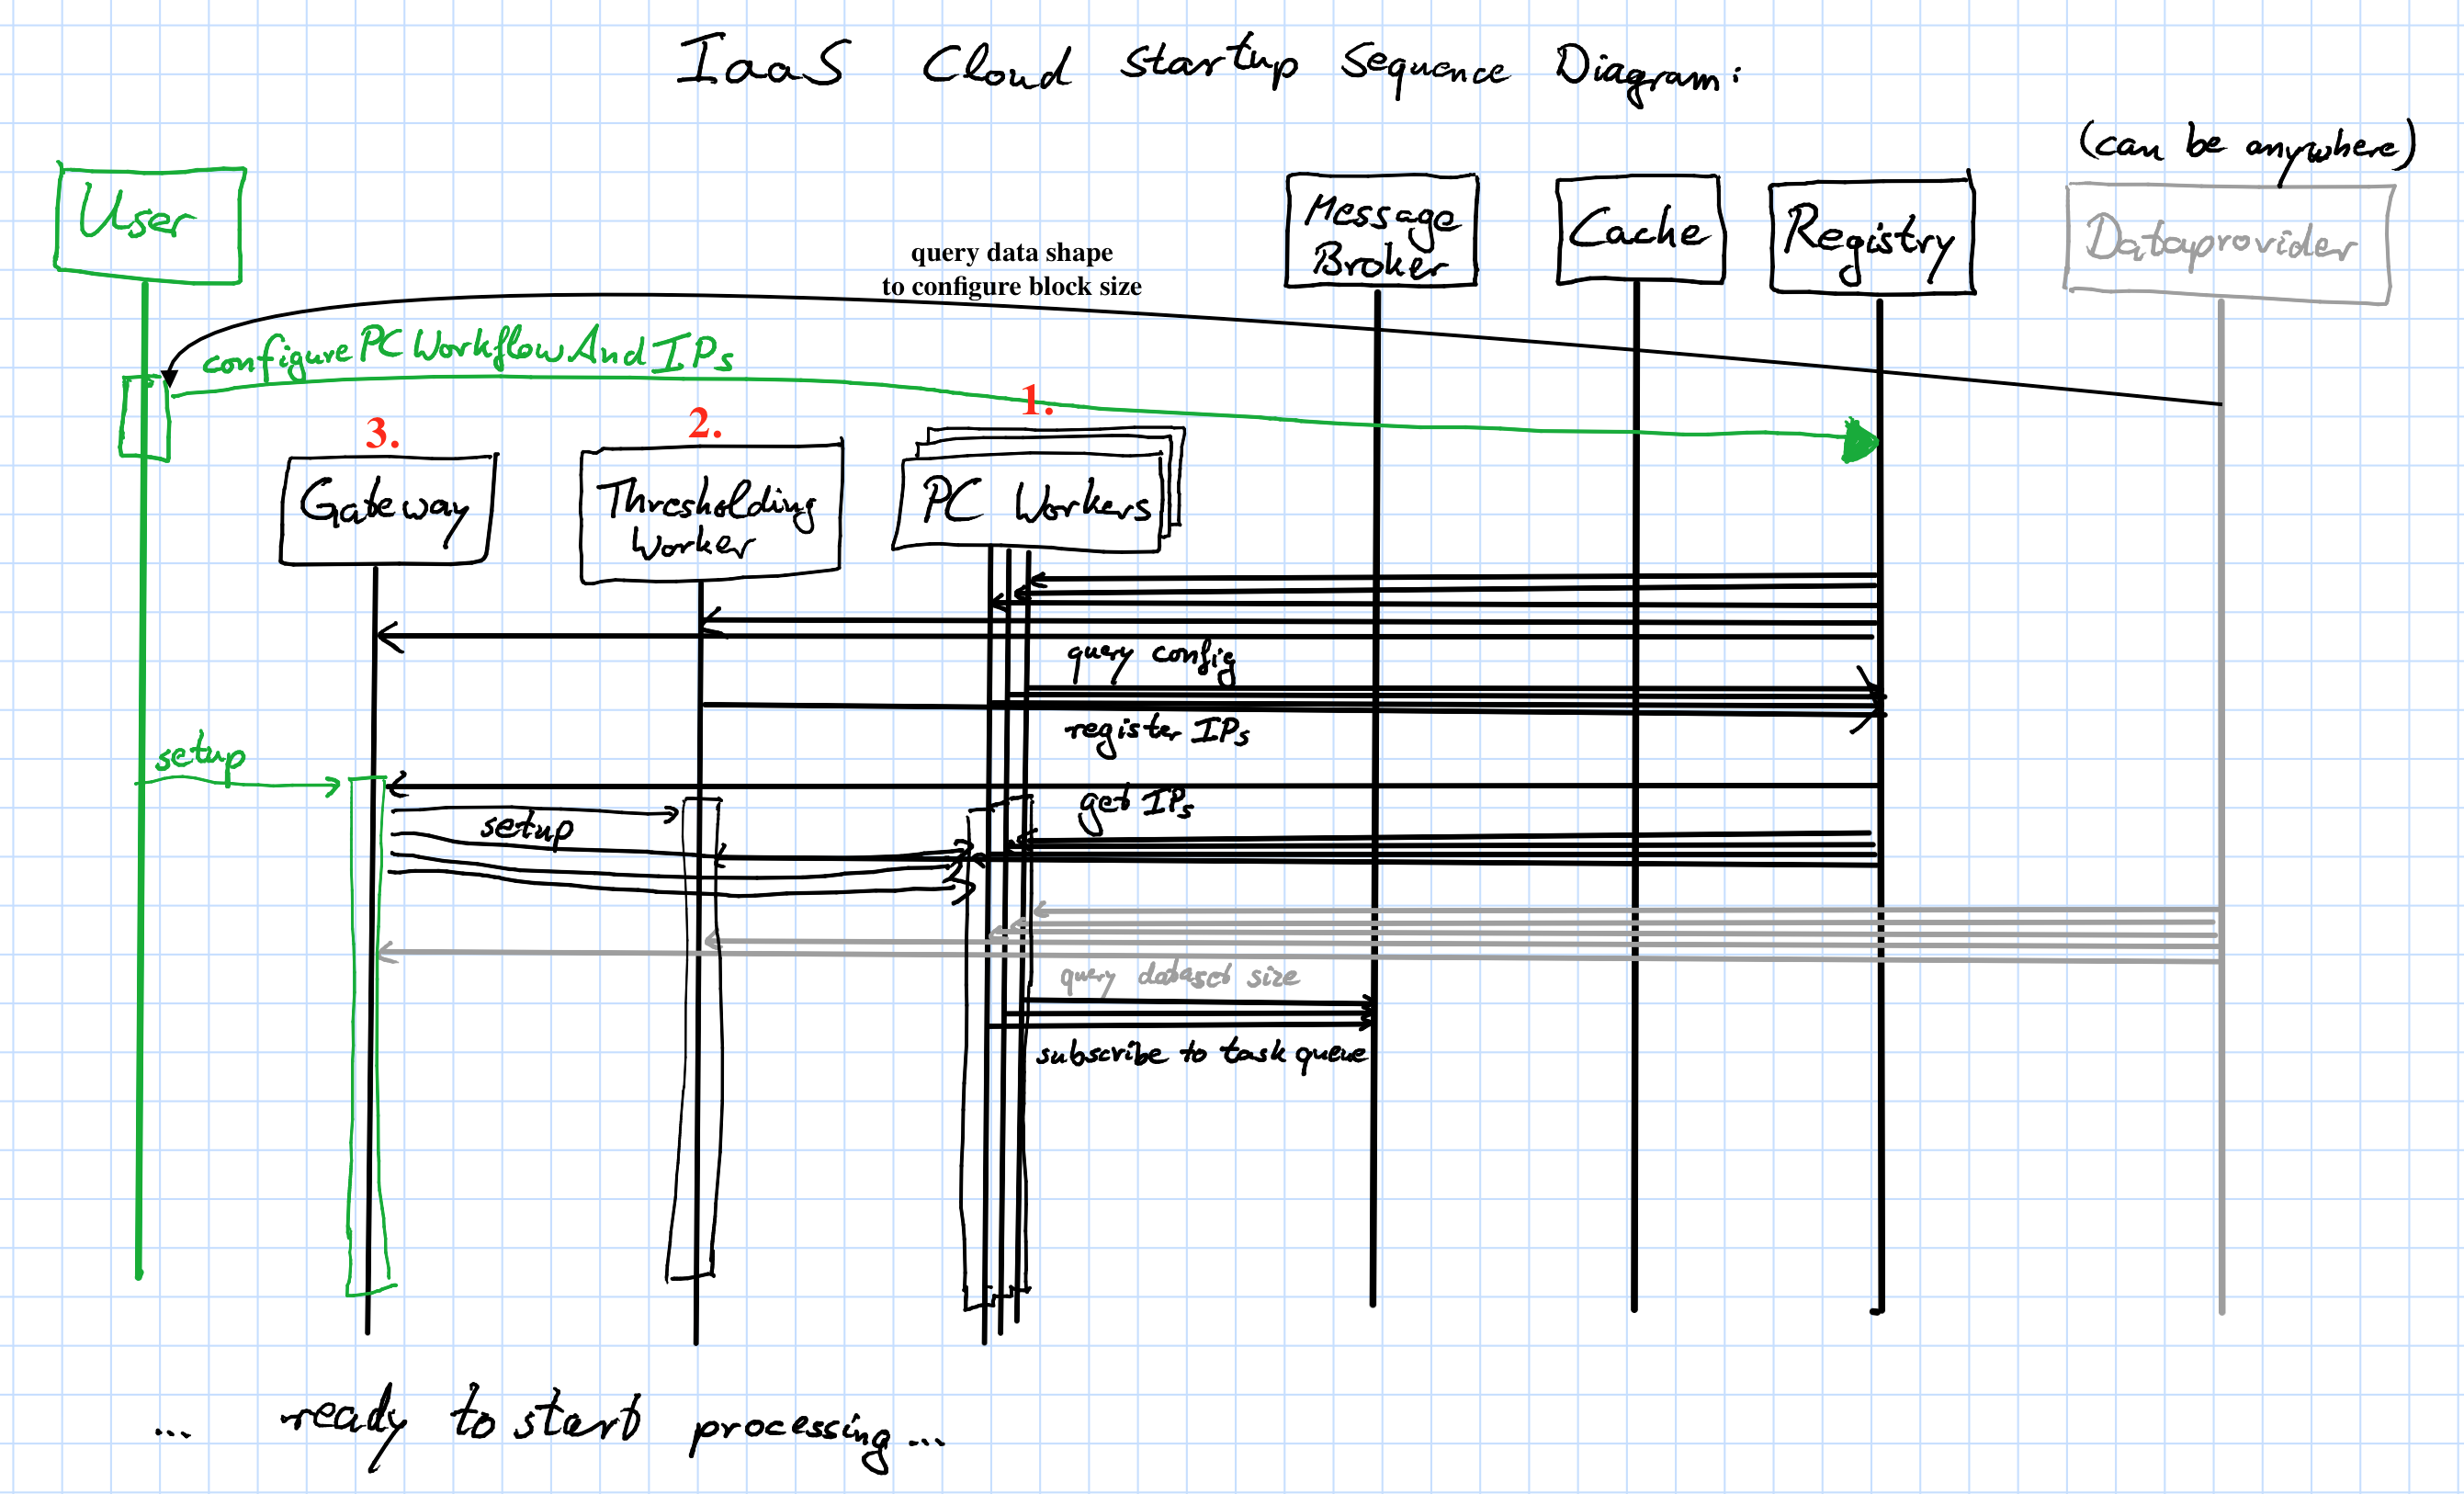 IaaS Cloud Startup Sequence Diagram:
(can be anywhere)
User
Message
Broker
Cache
Registry
Dataprovider
query data shape
to configure block size
configurePCWorkflowAndIPs
3.
2.
1.
Gateway
Thresholding
Worker
PC Workers
query config
register IPs
setup
get IPs
setup
query dataset size
subscribe to task queue
... ready to start processing...